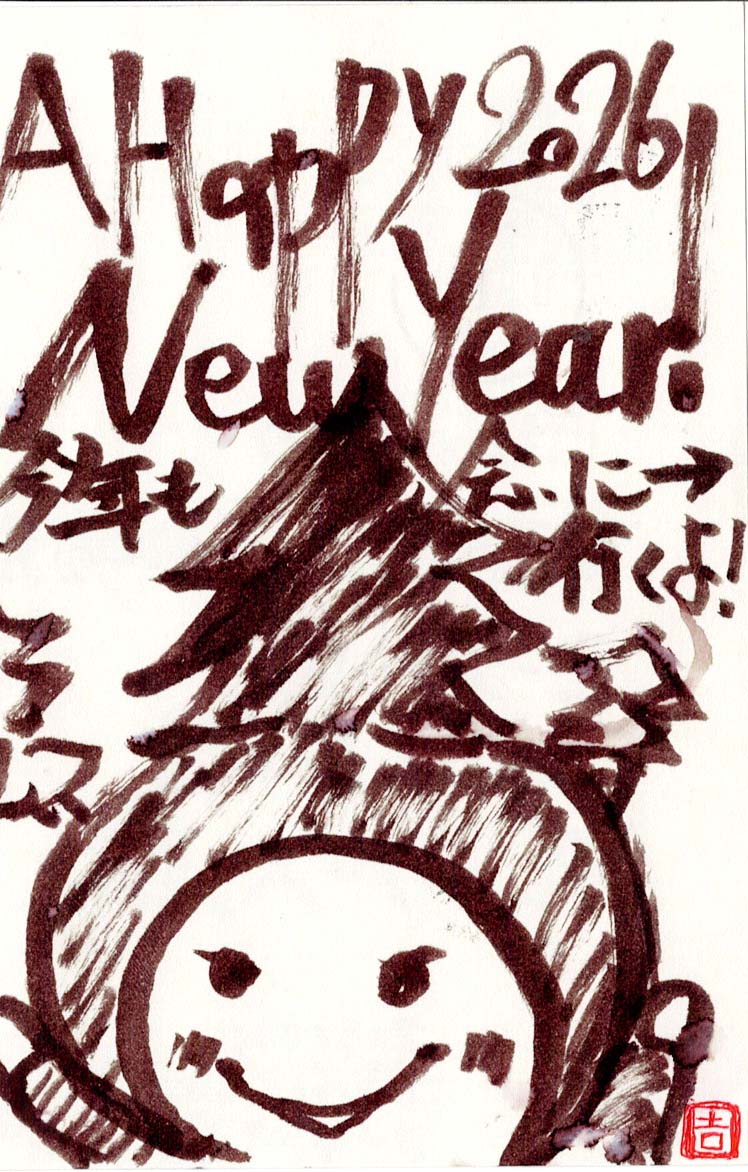 A Happy 2026
New Year!
今年も
会いに→
行くよ!
吉